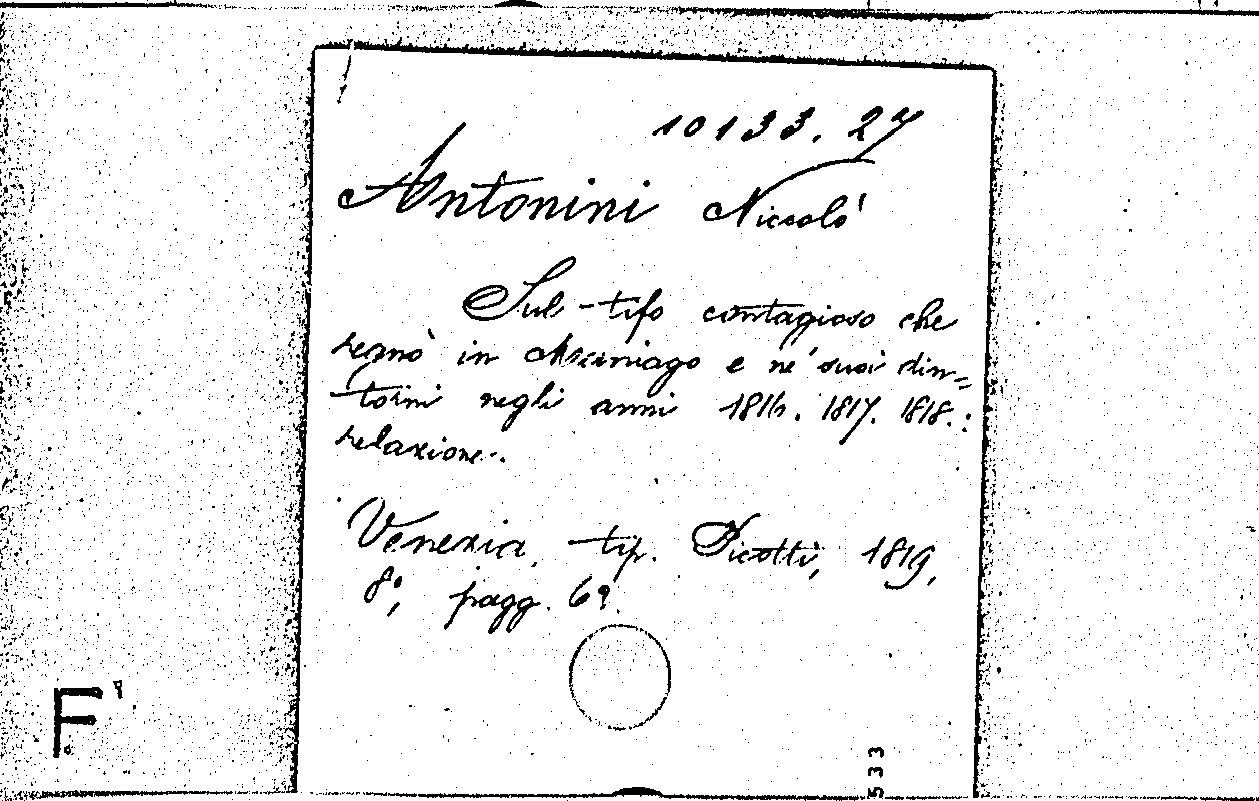 10133.27
Antonini Niccolò
Sul tifo contagioso che
regnò in Maniago e ne' suoi din=
torni negli anni 1816. 1817. 1818.:
relazione.
Venezia, tip. Picotti, 1819,
8°, pagg. 69.
F
533